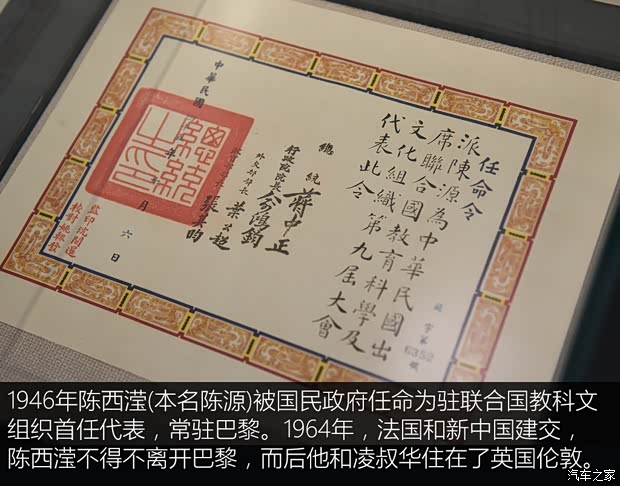 任命令
派陳源為中華民國出
席聯合國教育科學及
文化組織第九屆大會
代表此令
字第6352號
總統 蔣中正
行政院院長 俞鴻鈞
外交部部長 葉公超
部長 張其昀
中華民國 年 月 六日
監印沈開運
校對
1946年陈西滢(本名陈源)被国民政府任命为驻联合国教科文
组织首任代表，常驻巴黎。1964年，法国和新中国建交，
陈西滢不得不离开巴黎，而后他和凌叔华住在了英国伦敦。
汽车之家